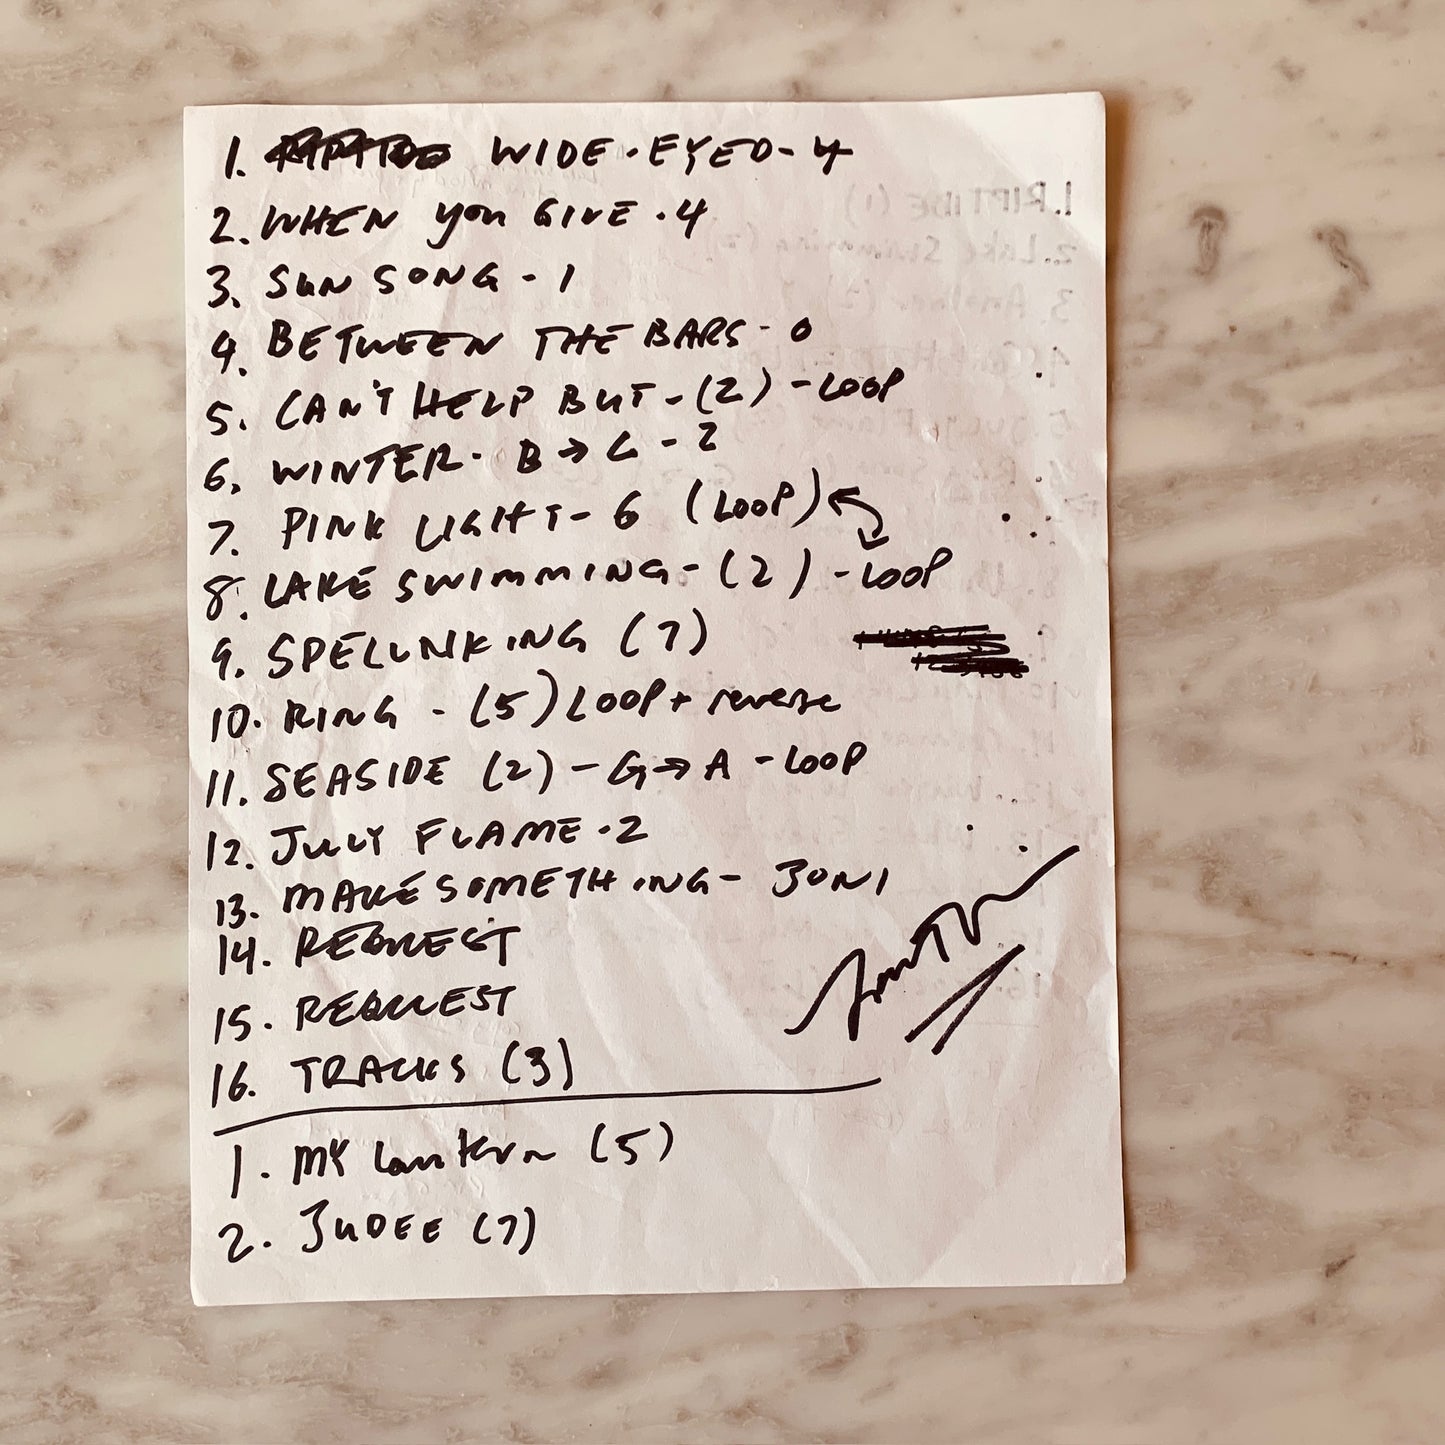 1. WIDE-EYED - 4
2. WHEN you GIVE - 4
3. SUN SONG - 1
4. BETWEEN THE BARS - 0
5. CAN'T HELP BUT - (2) - LOOP
6. WINTER - B → C - 2
7. PINK LIGHT - 6 (LOOP)
8. LAKE SWIMMING - (2) - LOOP
9. SPELUNKING (7)
10. RING - (5) LOOP + reverse
11. SEASIDE (2) - G → A - LOOP
12. JULY FLAME - 2
13. MAKE SOMETHING - JONI
14. REQUEST
15. REQUEST
16. TRACKS (3)
1. MY Lantern (5)
2. JUDEE (7)
1. RIPTIDE (1)
2. Lake Swimming (2)